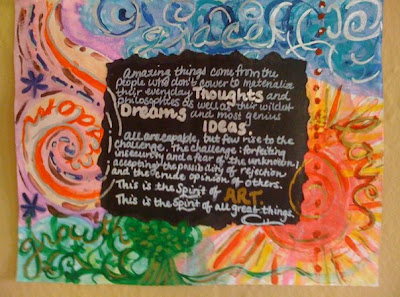 grace
Amazing things come from the
people who don't cower to materialize
their everyday Thoughts and
philosophies as well as their wildest
Dreams and most genius
IDEAS.
All are capable, but few rise to the
challenge. The challenge: forfeiting
insecurity and a fear of the unknown,
ignoring the possibility of rejection
and the crude opinion of others.
This is the Spirit of ART.
This is the Spirit of all great things.
growth